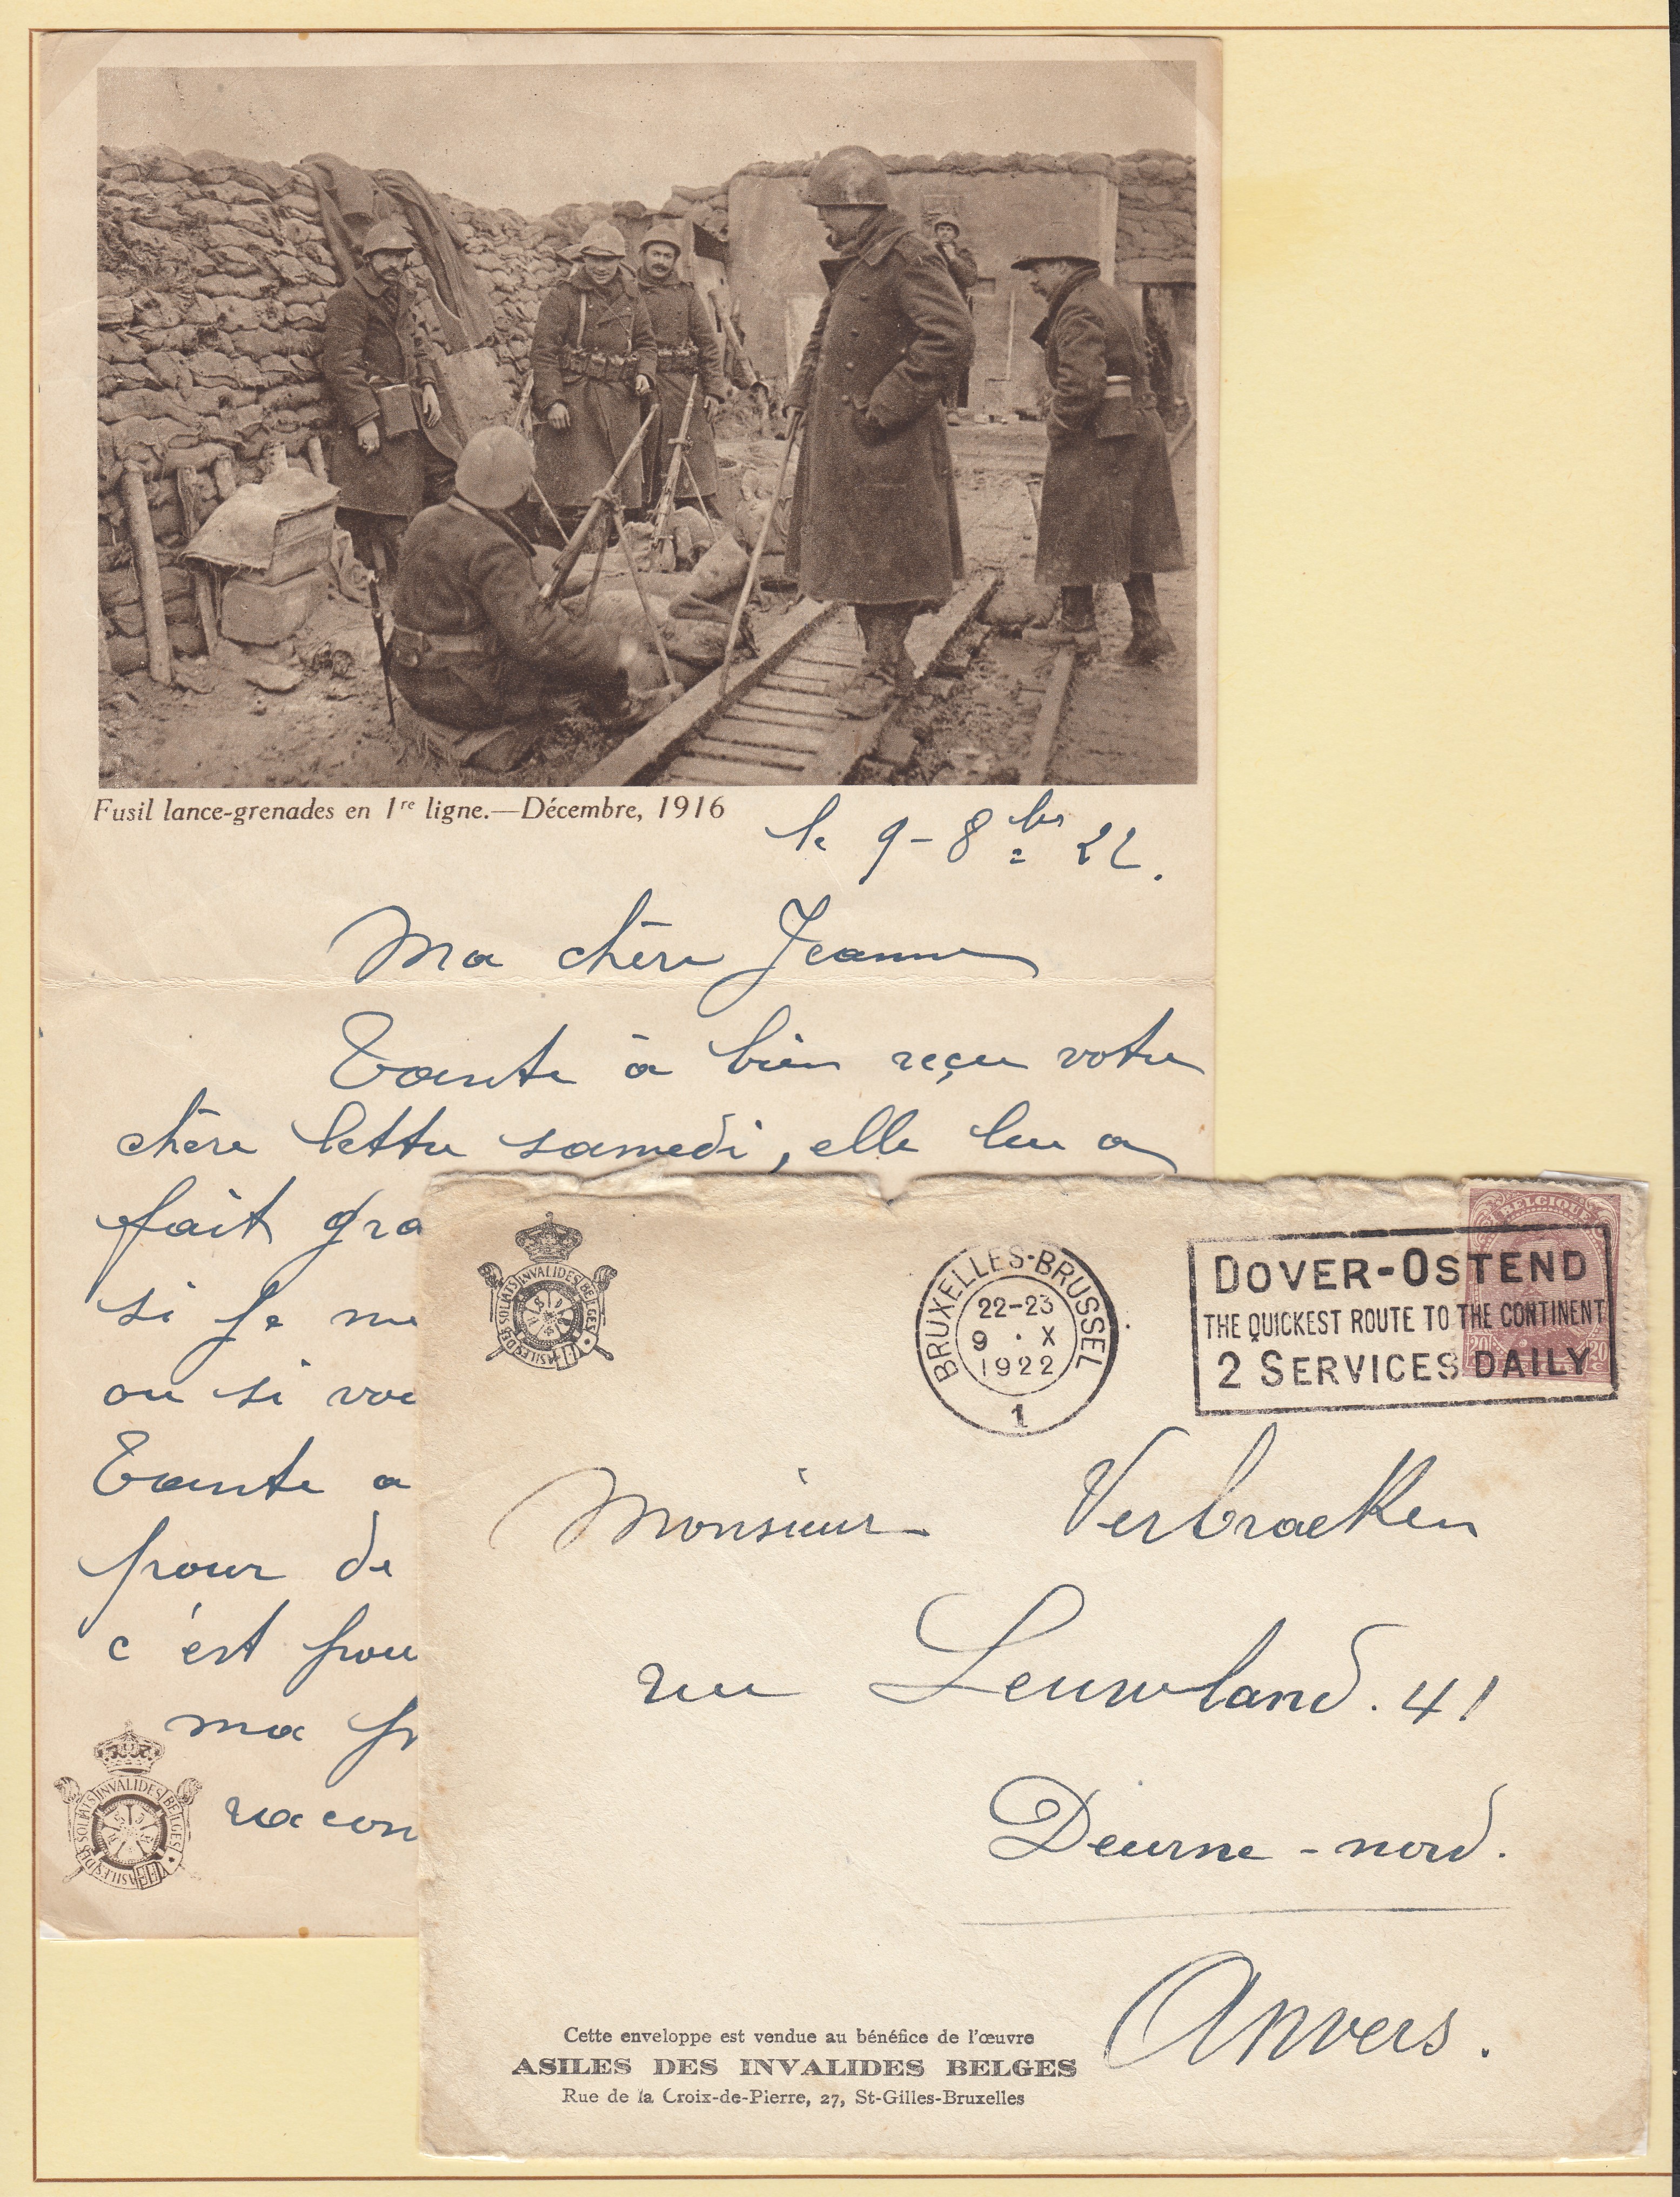 Fusil lance-grenades en 1re ligne.—Décembre, 1916
le 9-8bre 22.
Ma chère Jeanne
Tante a bien reçu votre
chère lettre samedi, elle lui a
fait gra
si je me
ou si vou
Tante a
pour de
c'est pou
ma
racon
ASILES DES SOLDATS INVALIDES BELGES
ASILES DES SOLDATS INVALIDES BELGES
BRUXELLES-BRUSSEL
22-23
9 · X
1922
1
BELGIQUE
20 20
DOVER-OSTEND
THE QUICKEST ROUTE TO THE CONTINENT
2 SERVICES DAILY
Monsieur Verbraeken
rue Leeuwland. 41
Deurne-nord.
Anvers.
Cette enveloppe est vendue au bénéfice de l'œuvre
ASILES DES INVALIDES BELGES
Rue de la Croix-de-Pierre, 27, St-Gilles-Bruxelles